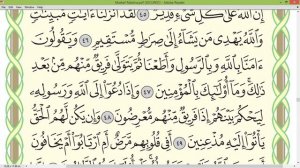 Mushaf Madina.pdf (SECURED) - Adobe Reader
إِنَّ ٱللَّهَ عَلَىٰ كُلِّ شَىْءٍ قَدِيرٌ ٤٥ لَّقَدْ أَنزَلْنَآ ءَايَٰتٍ مُّبَيِّنَٰتٍ
وَٱللَّهُ يَهْدِى مَن يَشَآءُ إِلَىٰ صِرَٰطٍ مُّسْتَقِيمٍ ٤٦ وَيَقُولُونَ
ءَامَنَّا بِٱللَّهِ وَبِٱلرَّسُولِ وَأَطَعْنَا ثُمَّ يَتَوَلَّىٰ فَرِيقٌ مِّنْهُم مِّنۢ بَعْدِ
ذَٰلِكَ وَمَآ أُو۟لَٰٓئِكَ بِٱلْمُؤْمِنِينَ ٤٧ وَإِذَا دُعُوٓا۟ إِلَى ٱللَّهِ وَرَسُولِهِۦ
لِيَحْكُمَ بَيْنَهُمْ إِذَا فَرِيقٌ مِّنْهُم مُّعْرِضُونَ ٤٨ وَإِن يَكُن لَّهُمُ ٱلْحَقُّ
يَأْتُوٓا۟ إِلَيْهِ مُذْعِنِينَ ٤٩ أَفِى قُلُوبِهِم مَّرَضٌ أَمِ ٱرْتَابُوٓا۟ أَمْ يَخَافُونَ